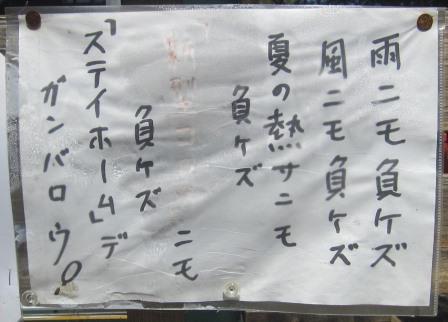 雨ニモ負ケズ
風ニモ負ケズ
夏の熱サニモ
負ケズ
ニモ
負ケズ
「ステイホーム」デ
ガンバロウ!